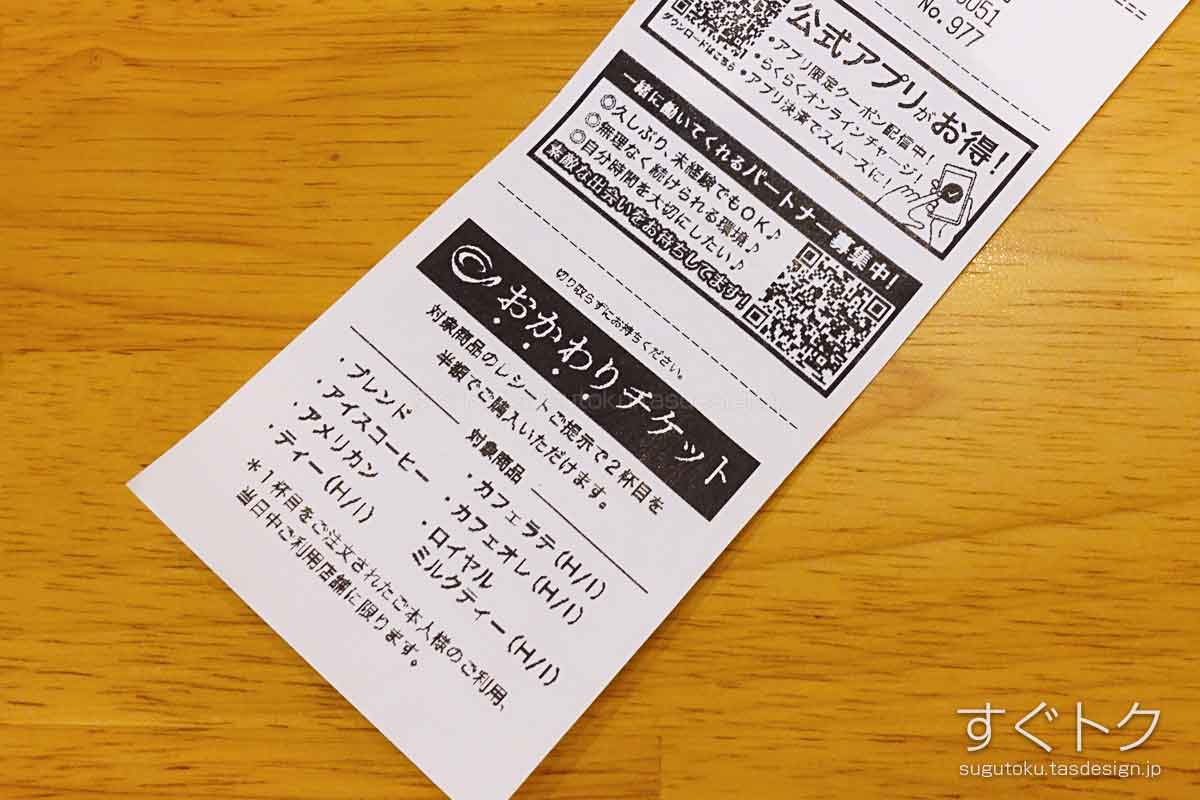 0051
No. 977
公式アプリがお得！
・アプリ限定クーポン配信中！
・らくらくオンラインチャージ！
・アプリ決済でスムーズに！
ダウンロードはこちら
一緒に働いてくれるパートナー募集中！
◎久しぶり、未経験でもOK♪
◎無理なく続けられる環境♪
◎自分時間を大切にしたい♪
素敵な出会いをお待ちしてます！
切り取らずにお持ちください。
おかわりチケット
対象商品のレシートご提示で2杯目を
半額でご購入いただけます。
対象商品
・ブレンド
・アイスコーヒー
・アメリカン
・ティー(H/I)
・カフェラテ(H/I)
・カフェオレ(H/I)
・ロイヤル
ミルクティー(H/I)
＊1杯目をご注文されたご本人様のご利用、
当日中ご利用店舗に限ります。
すぐトク
sugutoku.tasdesign.jp